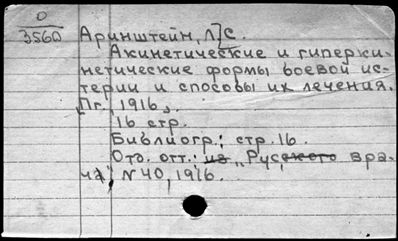 О
3560
Аринштейн, Л]С.
Акинетические и гиперки-
нетические формы боевой ис-
терии и способы их лечения.
[Пг., 1916].
16 стр.
Библиогр.: стр. 16.
Отд. отт.: из „Русского вра-
ча", N 40, 1916.